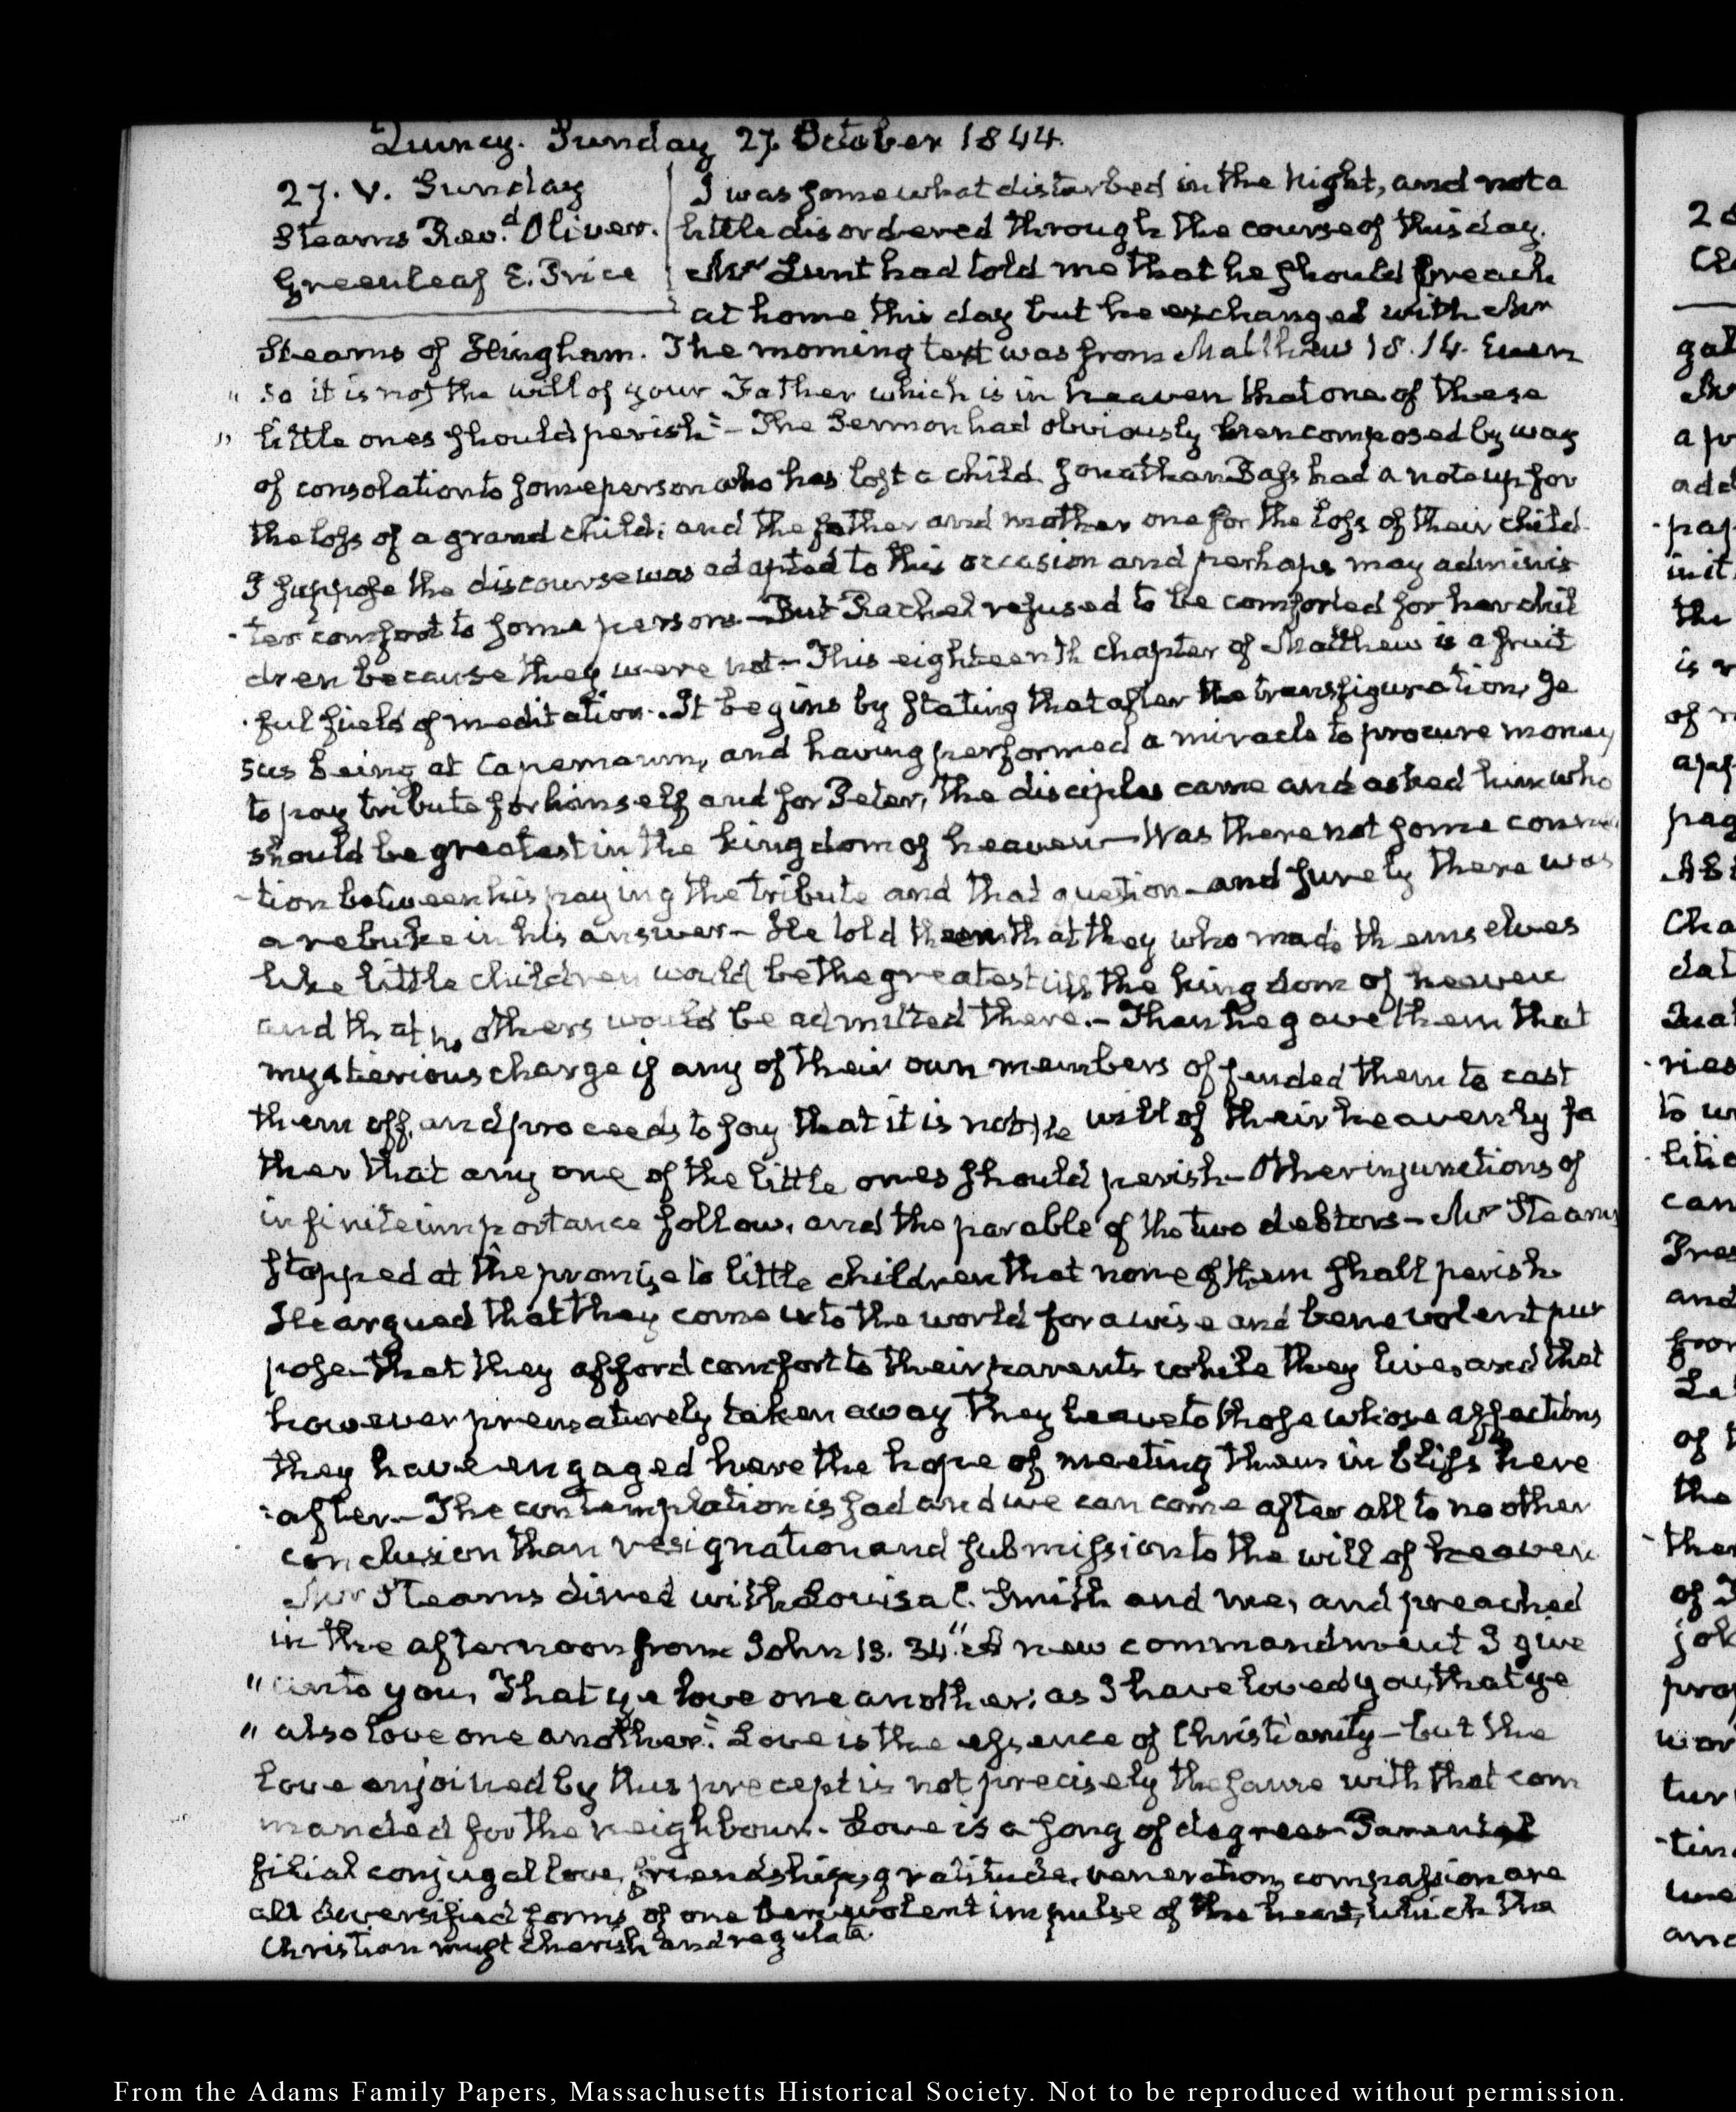 Quincy. Sunday 27. October 1844.
27. V. Sunday
Stearns Rev.d Oliver.
Greenleaf E. Price
I was somewhat disturbed in the Night, and not a
little disordered through the course of this day.
Mr Lunt had told me that he should preach
at home this day but he exchanged with Mr
Stearns of Hingham. The morning text was from Matthew 18. 14. Even
" so it is not the will of your Father which is in heaven that one of these
" little ones should perish" – The Sermon had obviously been composed by way
of consolation to some person who has lost a child. Jonathan Bass had a note up for
the loss of a grand child; and the father and mother one for the loss of their child.
I suppose the discourse was adapted to this occasion and perhaps may adminis
-ter comfort to some persons – But Rachel refused to be comforted for her chil
dren because they were not – This eighteenth chapter of Matthew is a fruit
-ful field of meditation. It begins by stating that after the transfiguration, Je
sus being at Capernaum, and having performed a miracle to procure money
to pay tribute for himself and for Peter, the disciples came and asked him who
should be greatest in the kingdom of heaven – Was there not some connec
-tion between his paying the tribute and that question – and surely there was
a rebuke in his answer – He told them that they who made themselves
like little children would be the greatest in the kingdom of heaven
and that no others would be admitted there. – Then he gave them that
mysterious charge if any of their own members offended them to cast
them off, and proceeds to say that it is not the will of their heavenly fa
ther that any one of the little ones should perish – Other injunctions of
infinite importance follow, and the parable of the two debtors – Mr Stearns
stopped at the promise to little children that none of them shall perish
He argued that they come into the world for a wise and benevolent pur
pose – that they afford comfort to their parents while they live, and that
however prematurely taken away they leave to those whose affections
they have engaged here the hope of meeting them in bliss here
-after – The contemplation is sad and we can come after all to no other
conclusion than resignation and submission to the will of heaven
Mr Stearns dined with Louisa C. Smith and me, and preached
in the afternoon from John 13. 34. "A new commandment I give
" unto you, That ye love one another; as I have loved you, that ye
" also love one another." Love is the essence of Christianity – but the
love enjoined by this precept is not precisely the same with that com
manded for the neighbour. Love is a song of degrees – Parental
filial conjugal love, friendship, gratitude, veneration, compassion are
all diversified forms of one benevolent impulse of the heart, which the
Christian must cherish and regulate.
From the Adams Family Papers, Massachusetts Historical Society. Not to be reproduced without permission.